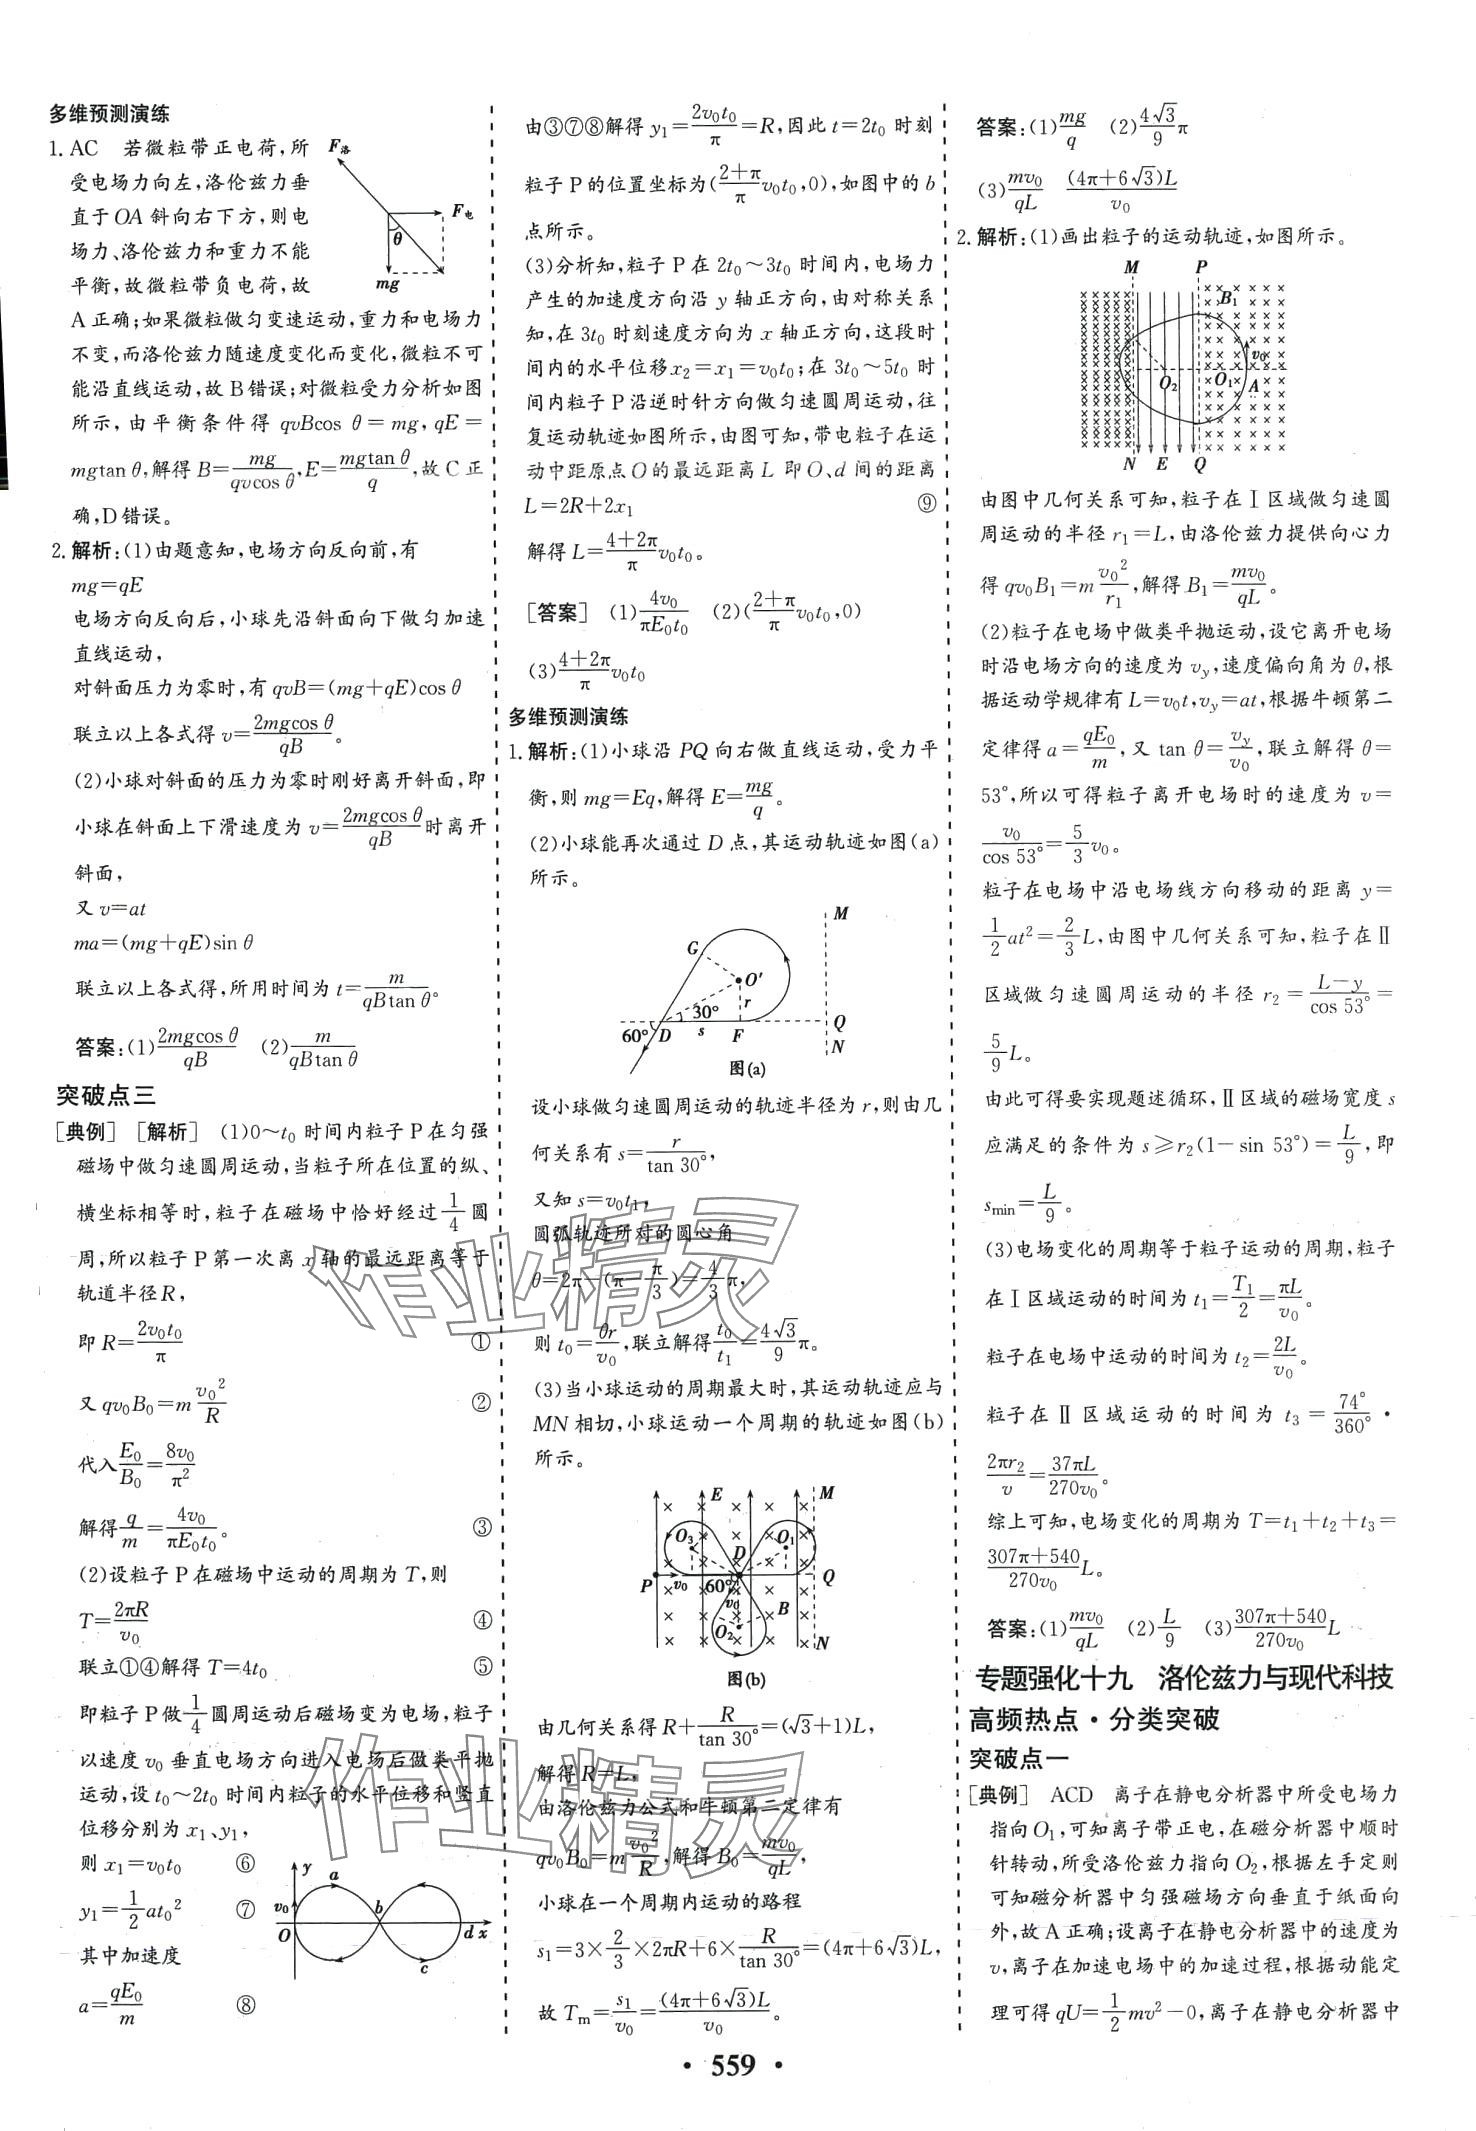 多维预测演练
1. AC　若微粒带正电荷,所
受电场力向左,洛伦兹力垂
直于OA斜向右下方,则电
场力、洛伦兹力和重力不能
平衡,故微粒带负电荷,故
F洛
F电
θ
mg
A正确;如果微粒做匀变速运动,重力和电场力
不变,而洛伦兹力随速度变化而变化,微粒不可
能沿直线运动,故B错误;对微粒受力分析如图
所示,由平衡条件得 qvBcos θ=mg,qE=
mgtan θ,解得B=mg/(qvcos θ),E=mgtan θ/q,故C正
确,D错误。
2. 解析:(1)由题意知,电场方向反向前,有
mg=qE
电场方向反向后,小球先沿斜面向下做匀加速
直线运动,
对斜面压力为零时,有qvB=(mg+qE)cos θ
联立以上各式得v=2mgcos θ/qB。
(2)小球对斜面的压力为零时刚好离开斜面,即
小球在斜面上下滑速度为v=2mgcos θ/qB时离开
斜面,
又v=at
ma=(mg+qE)sin θ
联立以上各式得,所用时间为t=m/(qBtan θ)。
答案:(1)2mgcos θ/qB　(2)m/(qBtan θ)
突破点三
[典例]　[解析]　(1)0～t₀时间内粒子P在匀强
磁场中做匀速圆周运动,当粒子所在位置的纵、
横坐标相等时,粒子在磁场中恰好经过1/4圆
周,所以粒子P第一次离x轴的最远距离等于
轨道半径R,
即R=2v₀t₀/π　①
又qv₀B₀=m v₀²/R　②
代入E₀/B₀=8v₀/π²
解得q/m=4v₀/(πE₀t₀)。　③
(2)设粒子P在磁场中运动的周期为T,则
T=2πR/v₀　④
联立①④解得T=4t₀　⑤
即粒子P做1/4圆周运动后磁场变为电场,粒子
以速度v₀垂直电场方向进入电场后做类平抛
运动,设t₀～2t₀时间内粒子的水平位移和竖直
位移分别为x₁、y₁,
则x₁=v₀t₀　⑥
y₁=1/2 at₀²　⑦
其中加速度
a=qE₀/m　⑧
y
a
v₀
b
O
d x
c
由③⑦⑧解得y₁=2v₀t₀/π=R,因此t=2t₀时刻
粒子P的位置坐标为((2+π)/π v₀t₀,0),如图中的b
点所示。
(3)分析知,粒子P在2t₀～3t₀时间内,电场力
产生的加速度方向沿y轴正方向,由对称关系
知,在3t₀时刻速度方向为x轴正方向,这段时
间内的水平位移x₂=x₁=v₀t₀;在3t₀～5t₀时
间内粒子P沿逆时针方向做匀速圆周运动,往
复运动轨迹如图所示,由图可知,带电粒子在运
动中距原点O的最远距离L即O、d间的距离
L=2R+2x₁　⑨
解得L=(4+2π)/π v₀t₀。
[答案]　(1)4v₀/(πE₀t₀)　(2)((2+π)/π v₀t₀,0)
(3)(4+2π)/π v₀t₀
多维预测演练
1. 解析:(1)小球沿PQ向右做直线运动,受力平
衡,则mg=Eq,解得E=mg/q。
(2)小球能再次通过D点,其运动轨迹如图(a)
所示。
M
G
O′
r
30°
60°
D
s
F
Q
N
图(a)
设小球做匀速圆周运动的轨迹半径为r,则由几
何关系有s=r/tan 30°,
又知s=v₀t₁,
圆弧轨迹所对的圆心角
θ=2π-(π-π/3)=4/3 π,
则t₀=θr/v₀,联立解得t₀/t₁=4√3/9 π。
(3)当小球运动的周期最大时,其运动轨迹应与
MN相切,小球运动一个周期的轨迹如图(b)
所示。
E
M
O₃
O₁
D
P
v₀
60°
Q
v₀
B
O₂
N
图(b)
由几何关系得R+R/tan 30°=(√3+1)L,
解得R=L,
由洛伦兹力公式和牛顿第二定律有
qv₀B₀=m v₀²/R,解得B₀=mv₀/qL,
小球在一个周期内运动的路程
s₁=3×2/3×2πR+6×R/tan 30°=(4π+6√3)L,
故Tₘ=s₁/v₀=(4π+6√3)L/v₀。
答案:(1)mg/q　(2)4√3/9 π
(3)mv₀/qL　(4π+6√3)L/v₀
2. 解析:(1)画出粒子的运动轨迹,如图所示。
M
P
B₁
v₀
O₂
O₁
A
N
E
Q
由图中几何关系可知,粒子在Ⅰ区域做匀速圆
周运动的半径r₁=L,由洛伦兹力提供向心力
得qv₀B₁=m v₀²/r₁,解得B₁=mv₀/qL。
(2)粒子在电场中做类平抛运动,设它离开电场
时沿电场方向的速度为v_y,速度偏向角为θ,根
据运动学规律有L=v₀t,v_y=at,根据牛顿第二
定律得a=qE₀/m,又tan θ=v_y/v₀,联立解得θ=
53°,所以可得粒子离开电场时的速度为v=
v₀/cos 53°=5/3 v₀。
粒子在电场中沿电场线方向移动的距离y=
1/2 at²=2/3 L,由图中几何关系可知,粒子在Ⅱ
区域做匀速圆周运动的半径r₂=(L-y)/cos 53°=
5/9 L。
由此可得要实现题述循环,Ⅱ区域的磁场宽度s
应满足的条件为s≥r₂(1-sin 53°)=L/9,即
s_min=L/9。
(3)电场变化的周期等于粒子运动的周期,粒子
在Ⅰ区域运动的时间为t₁=T₁/2=πL/v₀。
粒子在电场中运动的时间为t₂=2L/v₀。
粒子在Ⅱ区域运动的时间为t₃=74°/360°·
2πr₂/v=37πL/270v₀。
综上可知,电场变化的周期为T=t₁+t₂+t₃=
(307π+540)/270v₀ L。
答案:(1)mv₀/qL　(2)L/9　(3)(307π+540)/270v₀ L
专题强化十九　洛伦兹力与现代科技
高频热点·分类突破
突破点一
[典例]　ACD　离子在静电分析器中所受电场力
指向O₁,可知离子带正电,在磁分析器中顺时
针转动,所受洛伦兹力指向O₂,根据左手定则
可知磁分析器中匀强磁场方向垂直于纸面向
外,故A正确;设离子在静电分析器中的速度为
v,离子在加速电场中的加速过程,根据动能定
理可得qU=1/2 mv²-0,离子在静电分析器中
作业精灵
作业精灵
· 559 ·